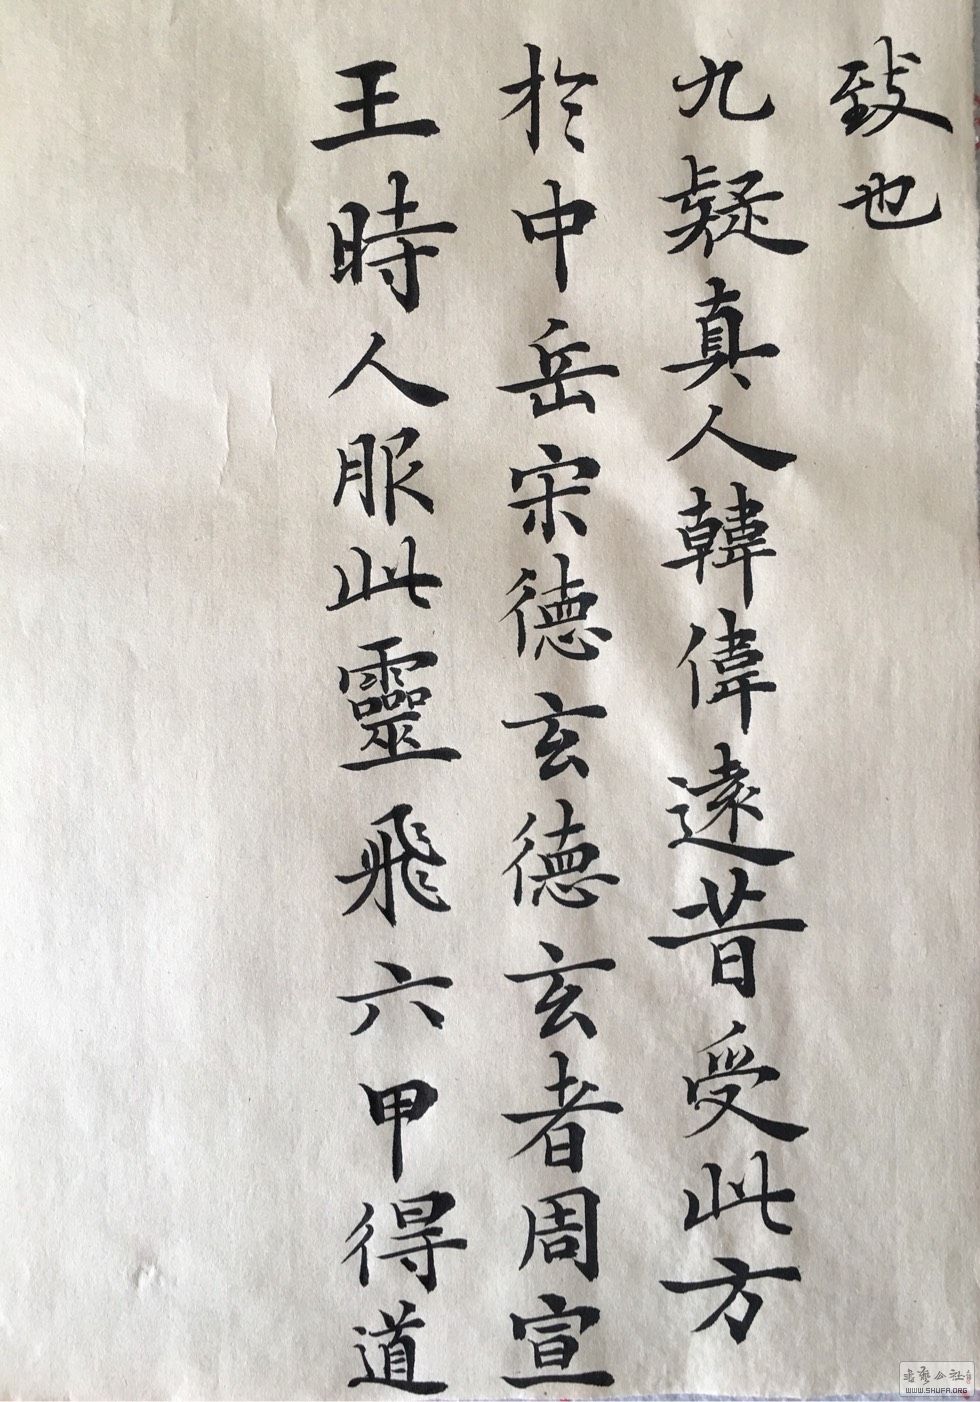 致也
九疑真人韓偉遠昔受此方
於中岳宋德玄德玄者周宣
王時人服此靈飛六甲得道
書藝公社
WWW.SHUFA.ORG